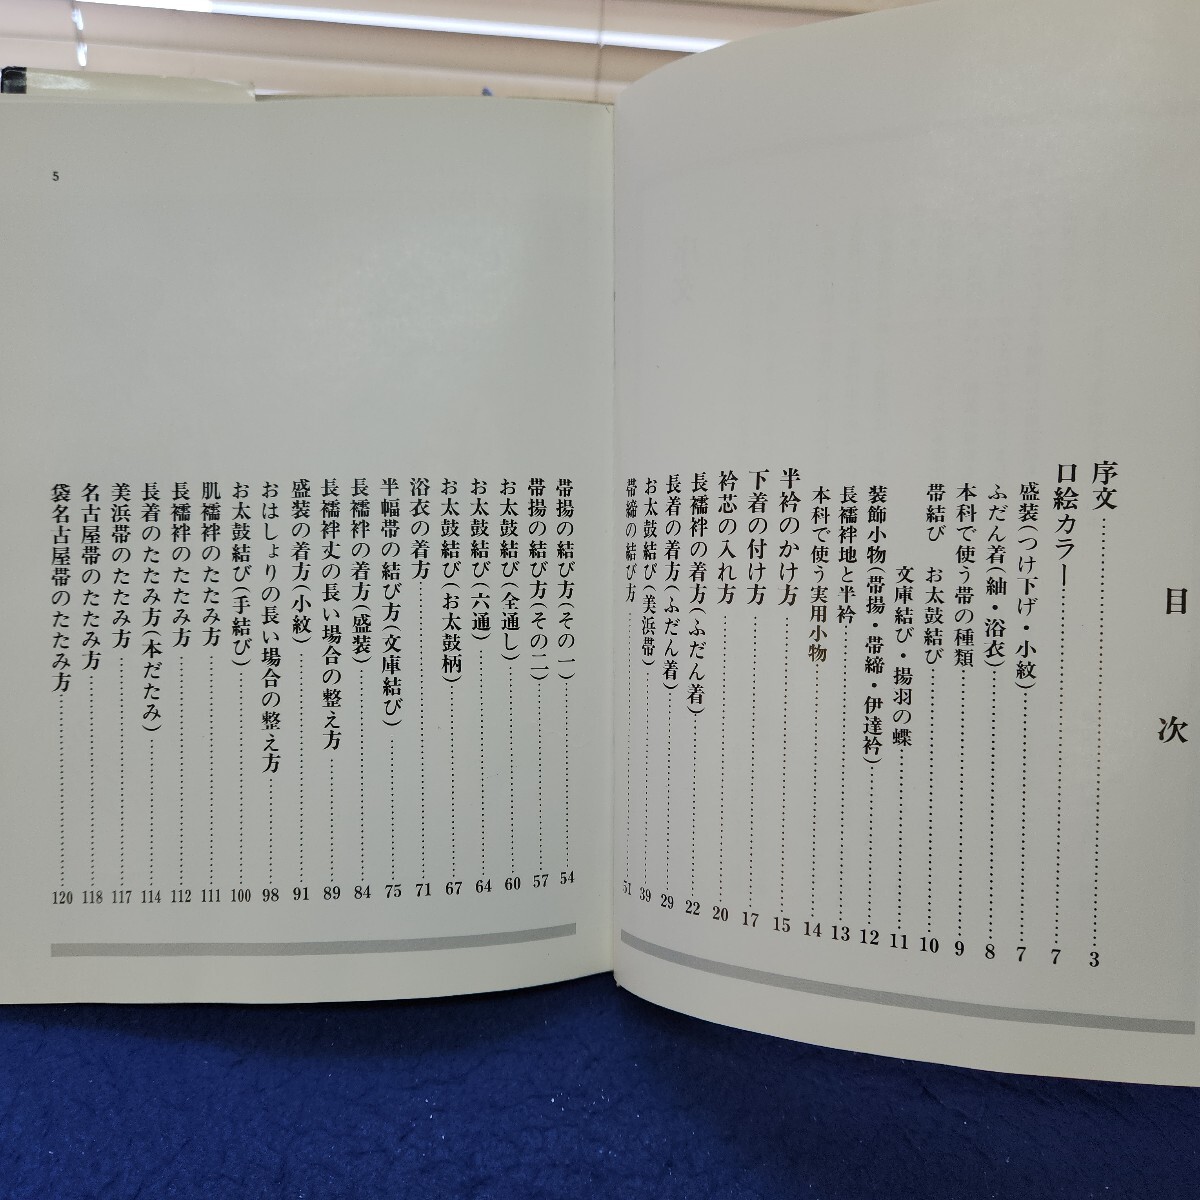 目次
序文 3
口絵カラー 7
盛装(つけ下げ・小紋) 7
ふだん着(紬・浴衣) 8
本科で使う帯の種類 9
帯結び お太鼓結び 10
文庫結び・揚羽の蝶 11
装飾小物(帯揚・帯締・伊達衿) 12
長襦袢地と半衿 13
本科で使う実用小物 14
半衿のかけ方 15
下着の付け方 17
衿芯の入れ方 20
長襦袢の着方(ふだん着) 22
長着の着方(ふだん着) 29
お太鼓結び(美浜帯) 39
帯締の結び方 51
帯揚の結び方(その一) 54
帯揚の結び方(その二) 57
お太鼓結び(全通し) 60
お太鼓結び(六通) 64
お太鼓結び(お太鼓柄) 67
浴衣の着方 71
半幅帯の結び方(文庫結び) 75
長襦袢の着方(盛装) 84
長襦袢丈の長い場合の整え方 89
盛装の着方(小紋) 91
おはしょりの長い場合の整え方 98
お太鼓結び(手結び) 100
肌襦袢のたたみ方 111
長襦袢のたたみ方 112
長着のたたみ方(本だたみ) 114
美浜帯のたたみ方 117
名古屋帯のたたみ方 118
袋名古屋帯のたたみ方 120
5